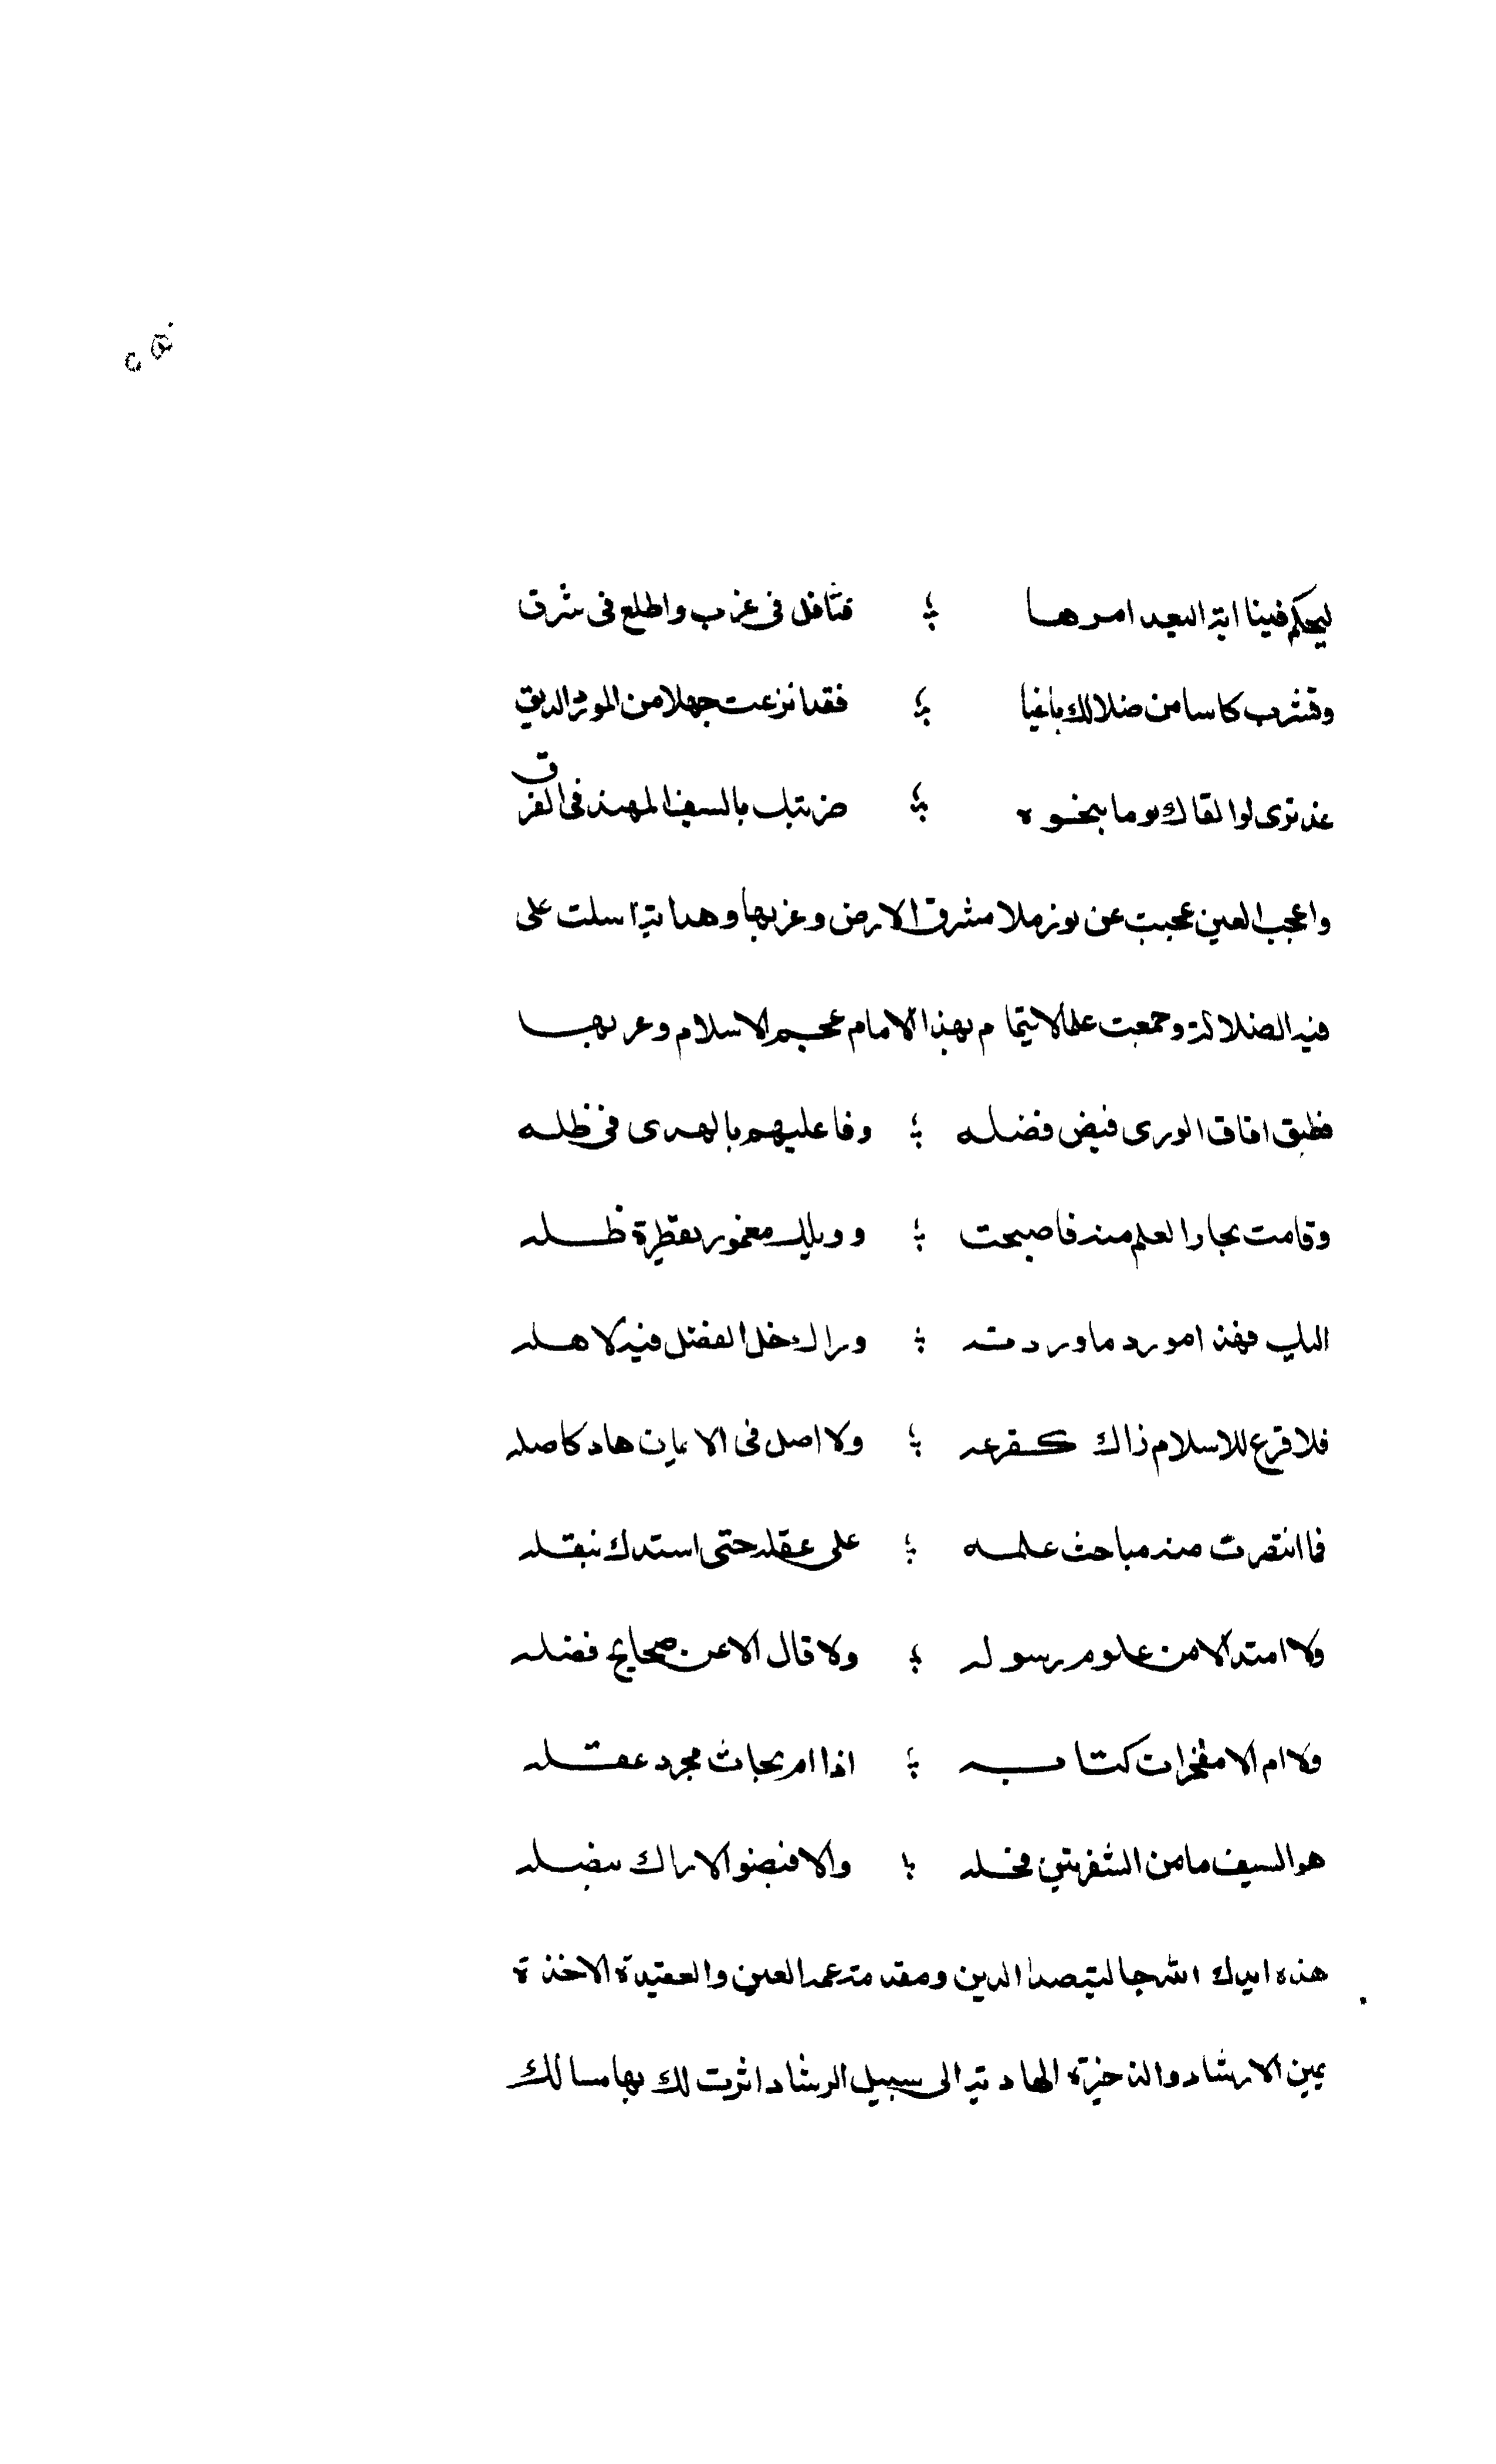 ليحكم فينا اية البعد امرها ؛ فتأفل فى غرب واطلع فى شرق
وتشرب كاسا من ضلالك باغيا ؛ فقد نزعت جهلا من الموثر الديق
غد ترى لوا لقاك يوما بنحوه ؛ ضربتك بالسيف المهند فى الفرق
واعجب لعين عجبت عن نور ملا مشرق الارض وغربها وهداية اسلت على
فيه الضلالة وجمعت على الايتمام بهذا الامام عجم الاسلام وعربها
فطبق افاق الورى فيض فضله ؛ وفا عليهم بالهدى فى ظله
وقامت بحار العلم منه فاصبحت ؛ وويلك مغمور بقطرة ظله
اليك فهذا مورد ما وردته ؛ وراك خل الفضل فيه لاهله
فلا فرع للاسلام ذاك كفرعه ؛ ولا اصل فى الايمان هاد كاصله
فما انتصرت منه مباحث علمه ؛ على عقله حتى استدك بنقله
ولا امتد الا من علوم رسوله ؛ ولا قال الا عن صحايح فضله
ولا ام الا مفخرات كتابه ؛ اذا ام بحاث مجرد عقله
هو السيف ما من الشفرتين فخله ؛ والا فبضو الاراك بفضله
هذه ايدك الله جا لتبصد الدين ومقدمة عمد العين والعقيدة الاخذة
بمين الارشاد والذخيرة الهادية الى سبيل الرشاد اثرت لك بها مسالك